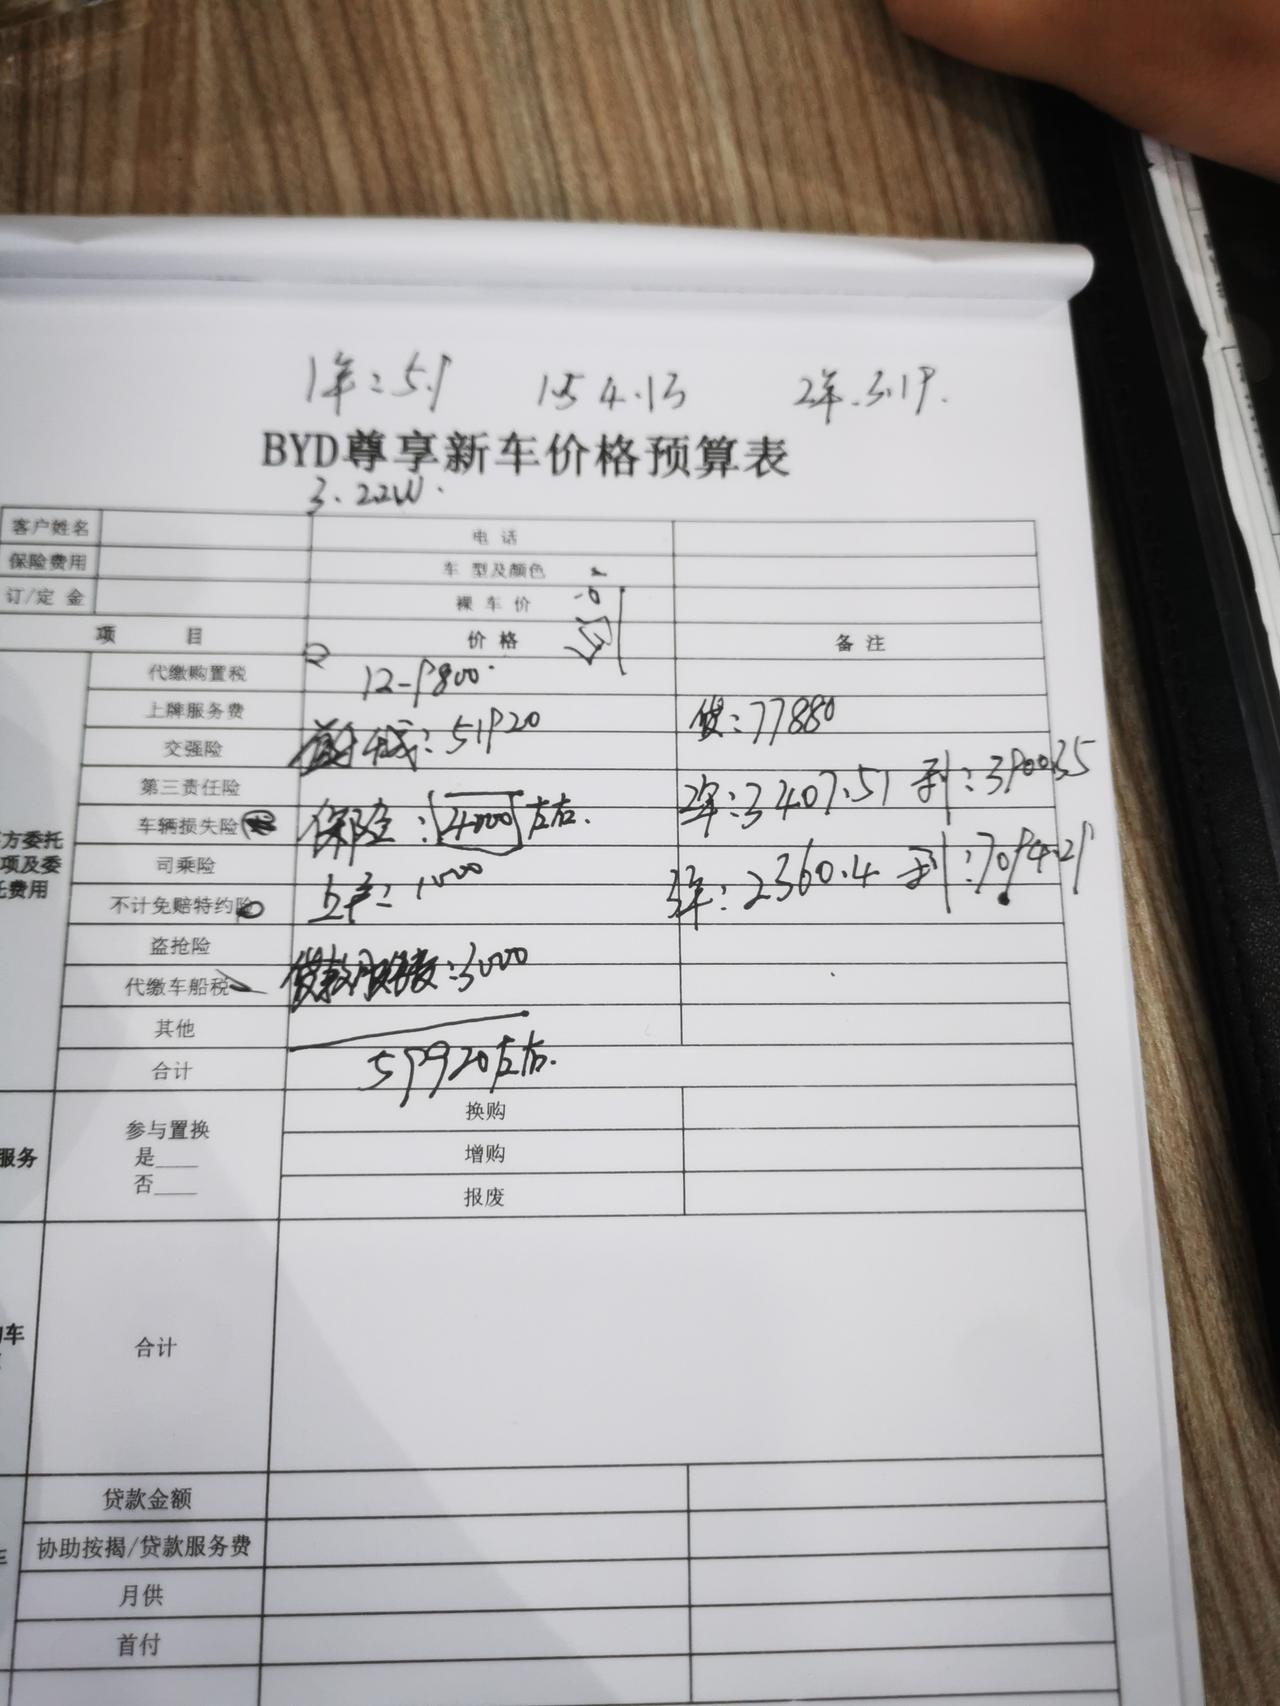 1年:5.9 1.5 4.13 2年.3.19.
BYD尊享新车价格预算表
3.22W.
客户姓名 电 话
保险费用 车 型及颜色
订/定 金 裸 车 价
项 目 价 格 备 注
代缴购置税 12-9800.
上牌服务费 贷:77880
交强险 :51920
第三责任险 2年:3407.51 利:3900.35
车辆损失险 保险:4000左右.
方委托
项及委
托费用
司乘险 3年:2360.4 利:7094.29
不计免赔特约险 上户:1000
盗抢险
代缴车船税 贷款服务费:3000
其他
合计 59920左右.
服务
参与置换 换购
是____ 增购
否____ 报废
车
合计
贷款金额
协助按揭/贷款服务费
月供
首付